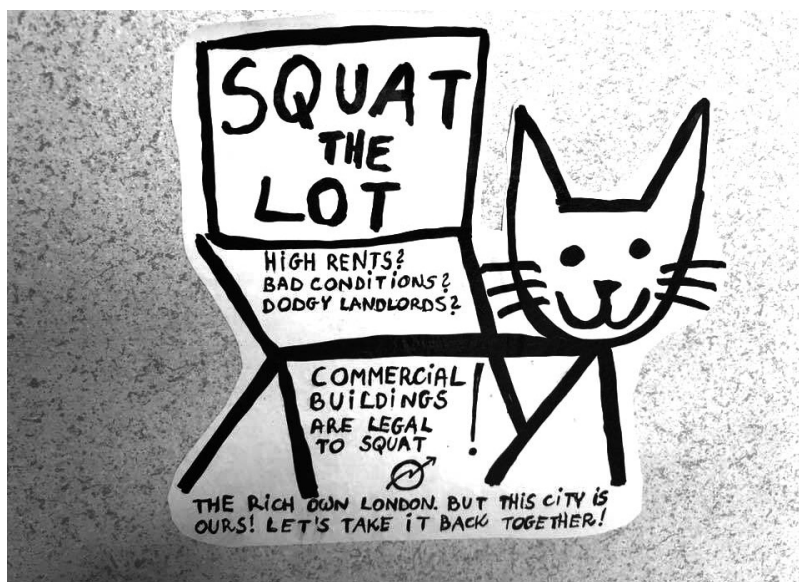 SQUAT
THE
LOT
HIGH RENTS?
BAD CONDITIONS?
DODGY LANDLORDS?
COMMERCIAL
BUILDINGS
ARE LEGAL
TO SQUAT!
THE RICH OWN LONDON. BUT THIS CITY IS
OURS! LET'S TAKE IT BACK TOGETHER!